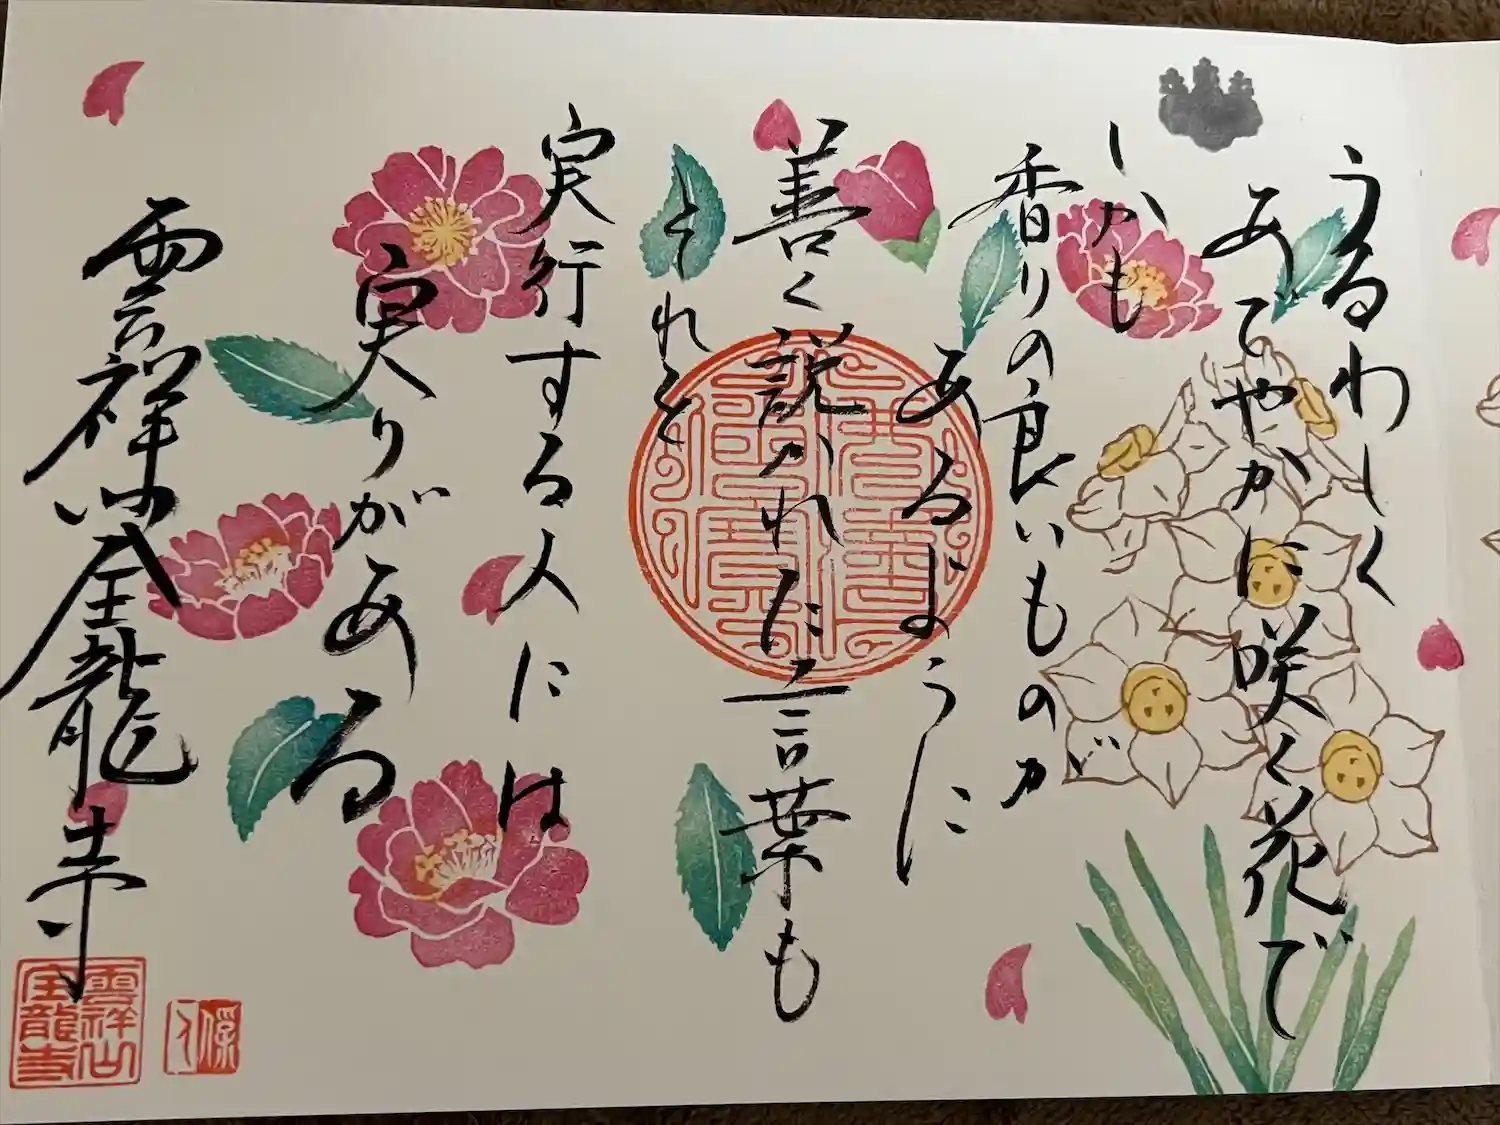 うるわしく
あでやかに咲く花で
しかも
香りの良いものが
あるように
善く説かれた言葉も
それを
実行する人には
実りがある
雲祥山全龍寺
雲祥山
全龍寺